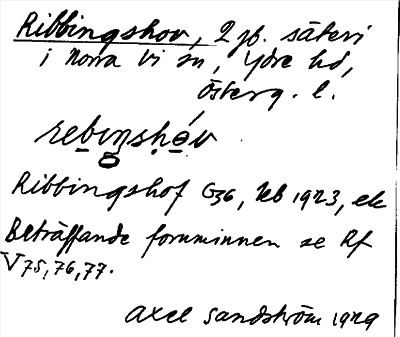 Ribbingshov, 2 jb. säteri
i Norra Vi sn, Ydre hd,
Österg. l.
Ribbingshof G36, Jeb 1923, ek
Beträffande fornminnen se Rf
V 75, 76, 77.
Axel Sandström 1929